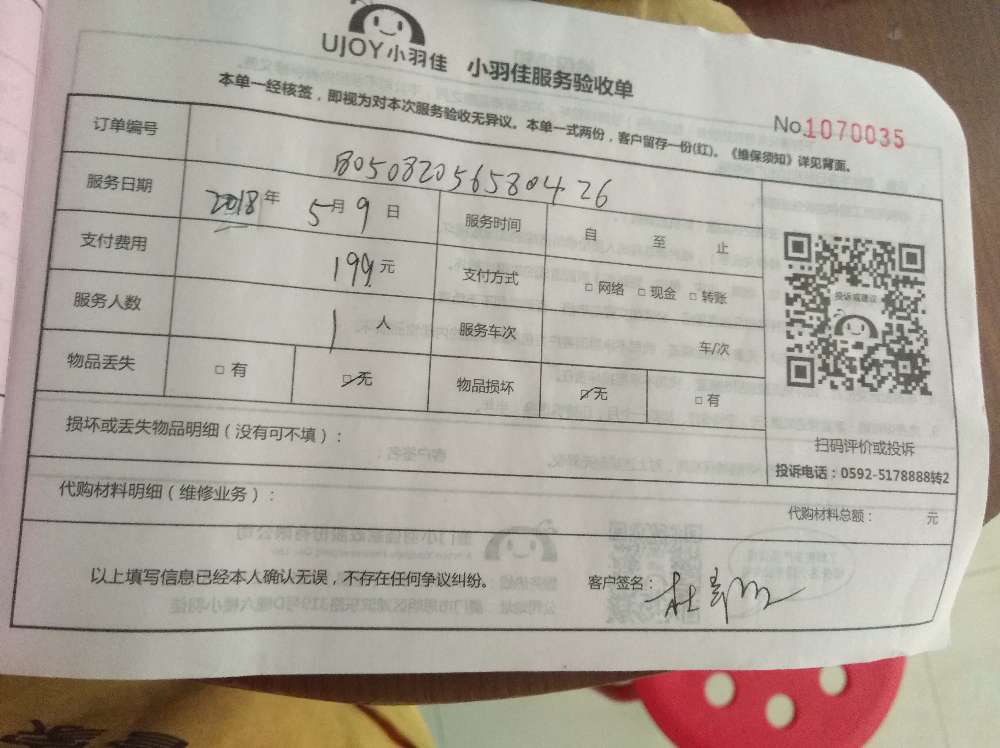 UJOY小羽佳 小羽佳服务验收单
本单一经核签，即视为对本次服务验收无异议。本单一式两份，客户留存一份(红)。《维保须知》详见背面。
No.1070035
订单编号 B05082056580426
服务日期 2018年 5月9日 服务时间 自 至 止
支付费用 199元 支付方式 □网络 □现金 □转账
服务人数 1人 服务车次 车/次
物品丢失 □有 ☑无 物品损坏 ☑无 □有
投诉或建议
扫码评价或投诉
投诉电话：0592-5178888转2
损坏或丢失物品明细（没有可不填）：
代购材料明细（维修业务）：
代购材料总额： 元
以上填写信息已经本人确认无误，不存在任何争议纠纷。 客户签名：